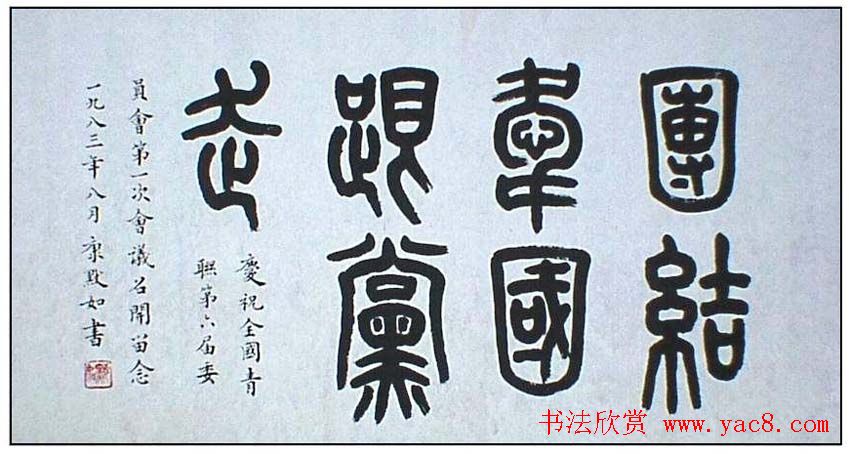 團結
國
跟黨
走
慶祝全國青
聯第六届委
員會第一次會議召開留念
一九八三年八月 康默如書
书法欣赏 www.yac8.com